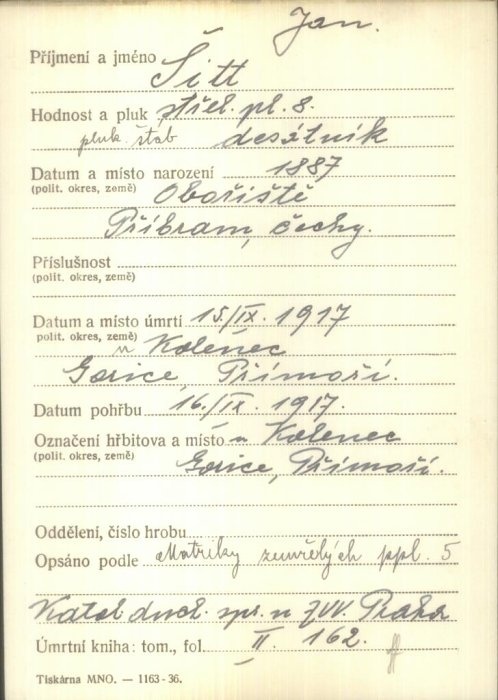 Jan.
Příjmení a jméno Šitt
Hodnost a pluk střel. pl. 8.
pluk. štab desátník
Datum a místo narození 1887
(polit. okres, země) Obořiště
Příbram, čechy.
Příslušnost
(polit. okres, země)
Datum a místo úmrtí 15./IX. 1917
polit. okres, země) u Kolenec
Gorice, Přímoří.
Datum pohřbu 16./IX. 1917.
Označení hřbitova a místo u Kolenec
(polit. okres, země) Gorice, Přímoří.
Oddělení, číslo hrobu
Opsáno podle Matriky zemřelých ppl. 5
Katol duch. spr. u ZVV. Praha
Úmrtní kniha: tom., fol. II. 162.
Tiskárna MNO. — 1163-36.